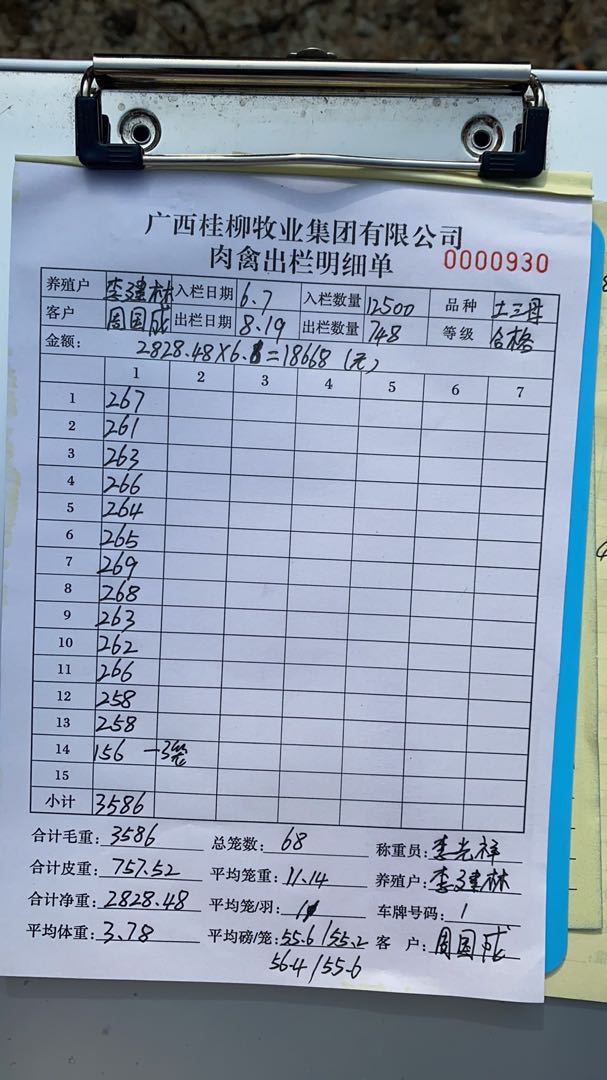 广西桂柳牧业集团有限公司
肉禽出栏明细单 0000930
养殖户 李建林 入栏日期 6.7 入栏数量 12500 品种 土三丹
客户 周国成 出栏日期 8.19 出栏数量 748 等级 合格
金额: 2828.48×6.6=18668 (元)
1 2 3 4 5 6 7
1 267
2 261
3 263
4 266
5 264
6 265
7 269
8 268
9 263
10 262
11 266
12 258
13 258
14 156 一3笼
15
小计 3586
合计毛重: 3586 总笼数: 68 称重员: 李光祥
合计皮重: 757.52 平均笼重: 11.14 养殖户: 李建林
合计净重: 2828.48 平均笼/羽: 11 车牌号码: 1
平均体重: 3.78 平均磅/笼: 55.6/55.2 客 户: 周国成
56.4/55.6